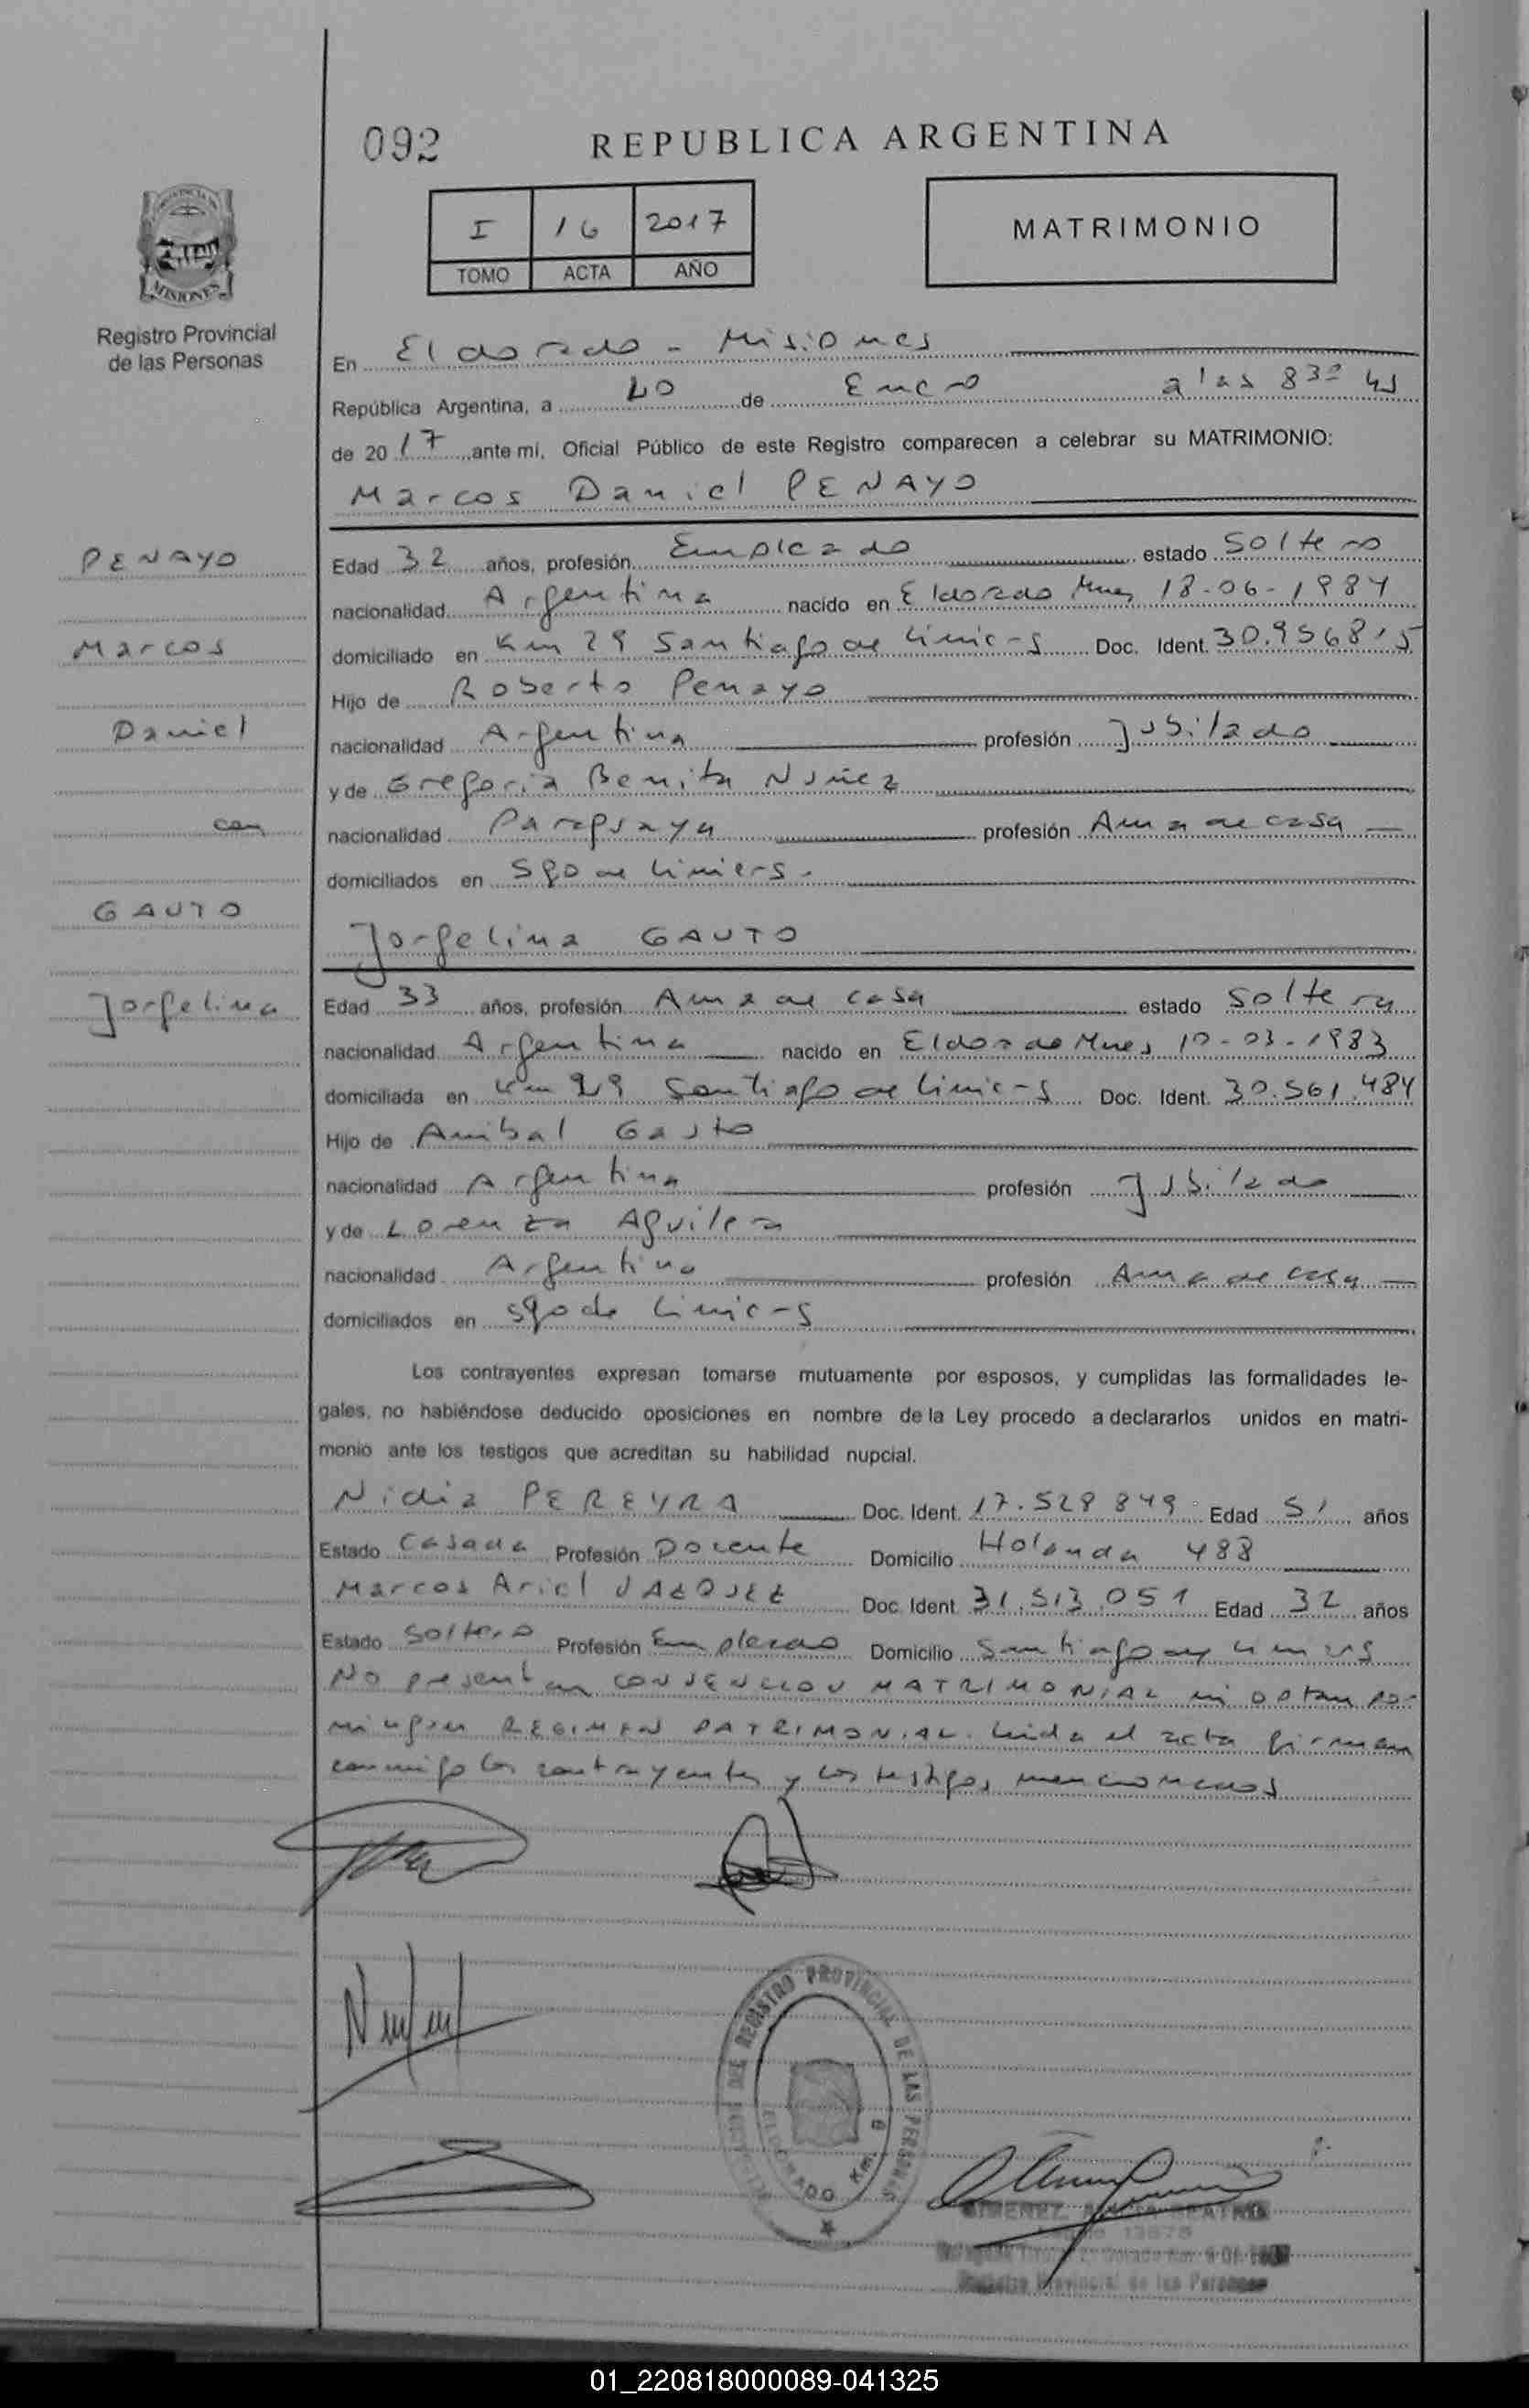 092
REPUBLICA ARGENTINA
I 16 2017
TOMO ACTA AÑO
MATRIMONIO
MISIONES
Registro Provincial
de las Personas
En Eldorado - Misiones
República Argentina, a 20 de Enero a las 8 30 hs
de 2017 ante mí, Oficial Público de este Registro comparecen a celebrar su MATRIMONIO:
Marcos Daniel PENAYO
PENAYO
Marcos
Daniel
con
GAUTO
Jorgelina
Edad 32 años, profesión Empleado estado Soltero
nacionalidad Argentina nacido en Eldorado Mnes 18-06-1984
domiciliado en Km 29 Santiago de Liniers Doc. Ident. 30.956815
Hijo de Roberto Penayo
nacionalidad Argentina profesión Jubilado
y de Gregoria Benita Nuñez
nacionalidad Paraguaya profesión Ama de casa
domiciliados en Sgo de Liniers.
Jorgelina GAUTO
Edad 33 años, profesión Ama de casa estado Soltera
nacionalidad Argentina nacido en Eldorado Mnes 10-03-1983
domiciliada en Km 29 Santiago de Liniers Doc. Ident. 30.561.484
Hijo de Anibal Gauto
nacionalidad Argentina profesión Jubilado
y de Lorenza Aguilera
nacionalidad Argentina profesión Ama de casa
domiciliados en Sgo de Liniers
Los contrayentes expresan tomarse mutuamente por esposos, y cumplidas las formalidades le-
gales, no habiéndose deducido oposiciones en nombre de la Ley procedo a declararlos unidos en matri-
monio ante los testigos que acreditan su habilidad nupcial.
Nidia PEREYRA Doc. Ident. 17.528849 Edad 51 años
Estado Casada Profesión Docente Domicilio Holanda 488
Marcos Ariel VAZQUEZ Doc. Ident. 31.513.051 Edad 32 años
Estado Soltero Profesión Empleado Domicilio Santiago de Liniers
No presentan CONVENCION MATRIMONIAL ni optan por
ningun REGIMEN PATRIMONIAL. Leida el acta firman
conmigo los contrayentes y los testigos mencionados
DEL REGISTRO PROVINCIAL DE LAS PERSONAS
ELDORADO Km.
GIMENEZ, BEATRIZ
Registro Provincial de las Personas
01_220818000089-041325